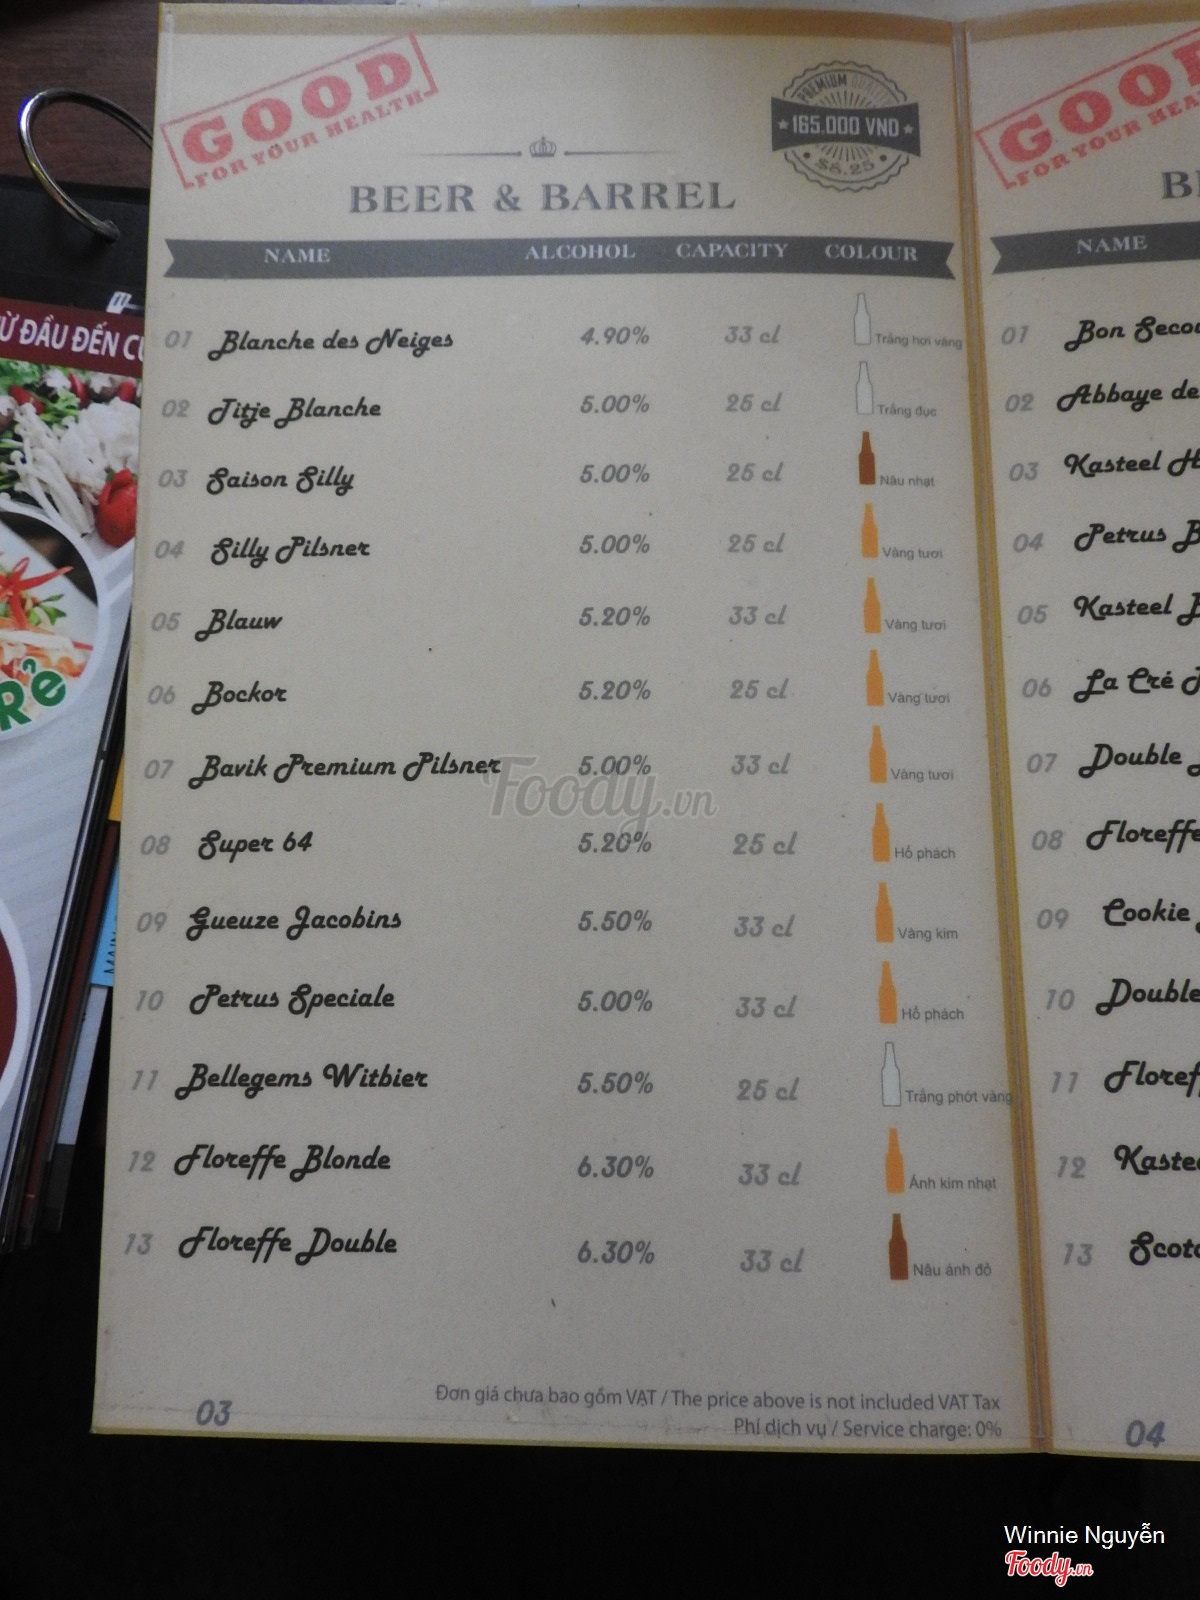 GOOD
FOR YOUR HEALTH
PREMIUM QUALITY
165.000 VND
$8.25
BEER & BARREL
NAME ALCOHOL CAPACITY COLOUR
01 Blanche des Neiges 4.90% 33 cl Trắng hơi vàng
02 Titje Blanche 5.00% 25 cl Trắng đục
03 Saison Silly 5.00% 25 cl Nâu nhạt
04 Silly Pilsner 5.00% 25 cl Vàng tươi
05 Blauw 5.20% 33 cl Vàng tươi
06 Bockor 5.20% 25 cl Vàng tươi
07 Bavik Premium Pilsner 5.00% 33 cl Vàng tươi
08 Super 64 5.20% 25 cl Hổ phách
09 Gueuze Jacobins 5.50% 33 cl Vàng kim
10 Petrus Speciale 5.00% 33 cl Hổ phách
11 Bellegems Witbier 5.50% 25 cl Trắng phớt vàng
12 Floreffe Blonde 6.30% 33 cl Ánh kim nhạt
13 Floreffe Double 6.30% 33 cl Nâu ánh đỏ
Đơn giá chưa bao gồm VAT / The price above is not included VAT Tax
Phí dịch vụ / Service charge: 0%
03
GOOD
FOR YOUR
NAME
01 Bon
02 Abbaye de
03 Kasteel
04 Petrus
05 Kasteel
06 La Cré
07 Double
08 Floreffe
09 Cookie
10 Double
11
12
13
04
ĐẦU ĐẾN
Rẻ
Foody.vn
Winnie Nguyễn
Foody.vn